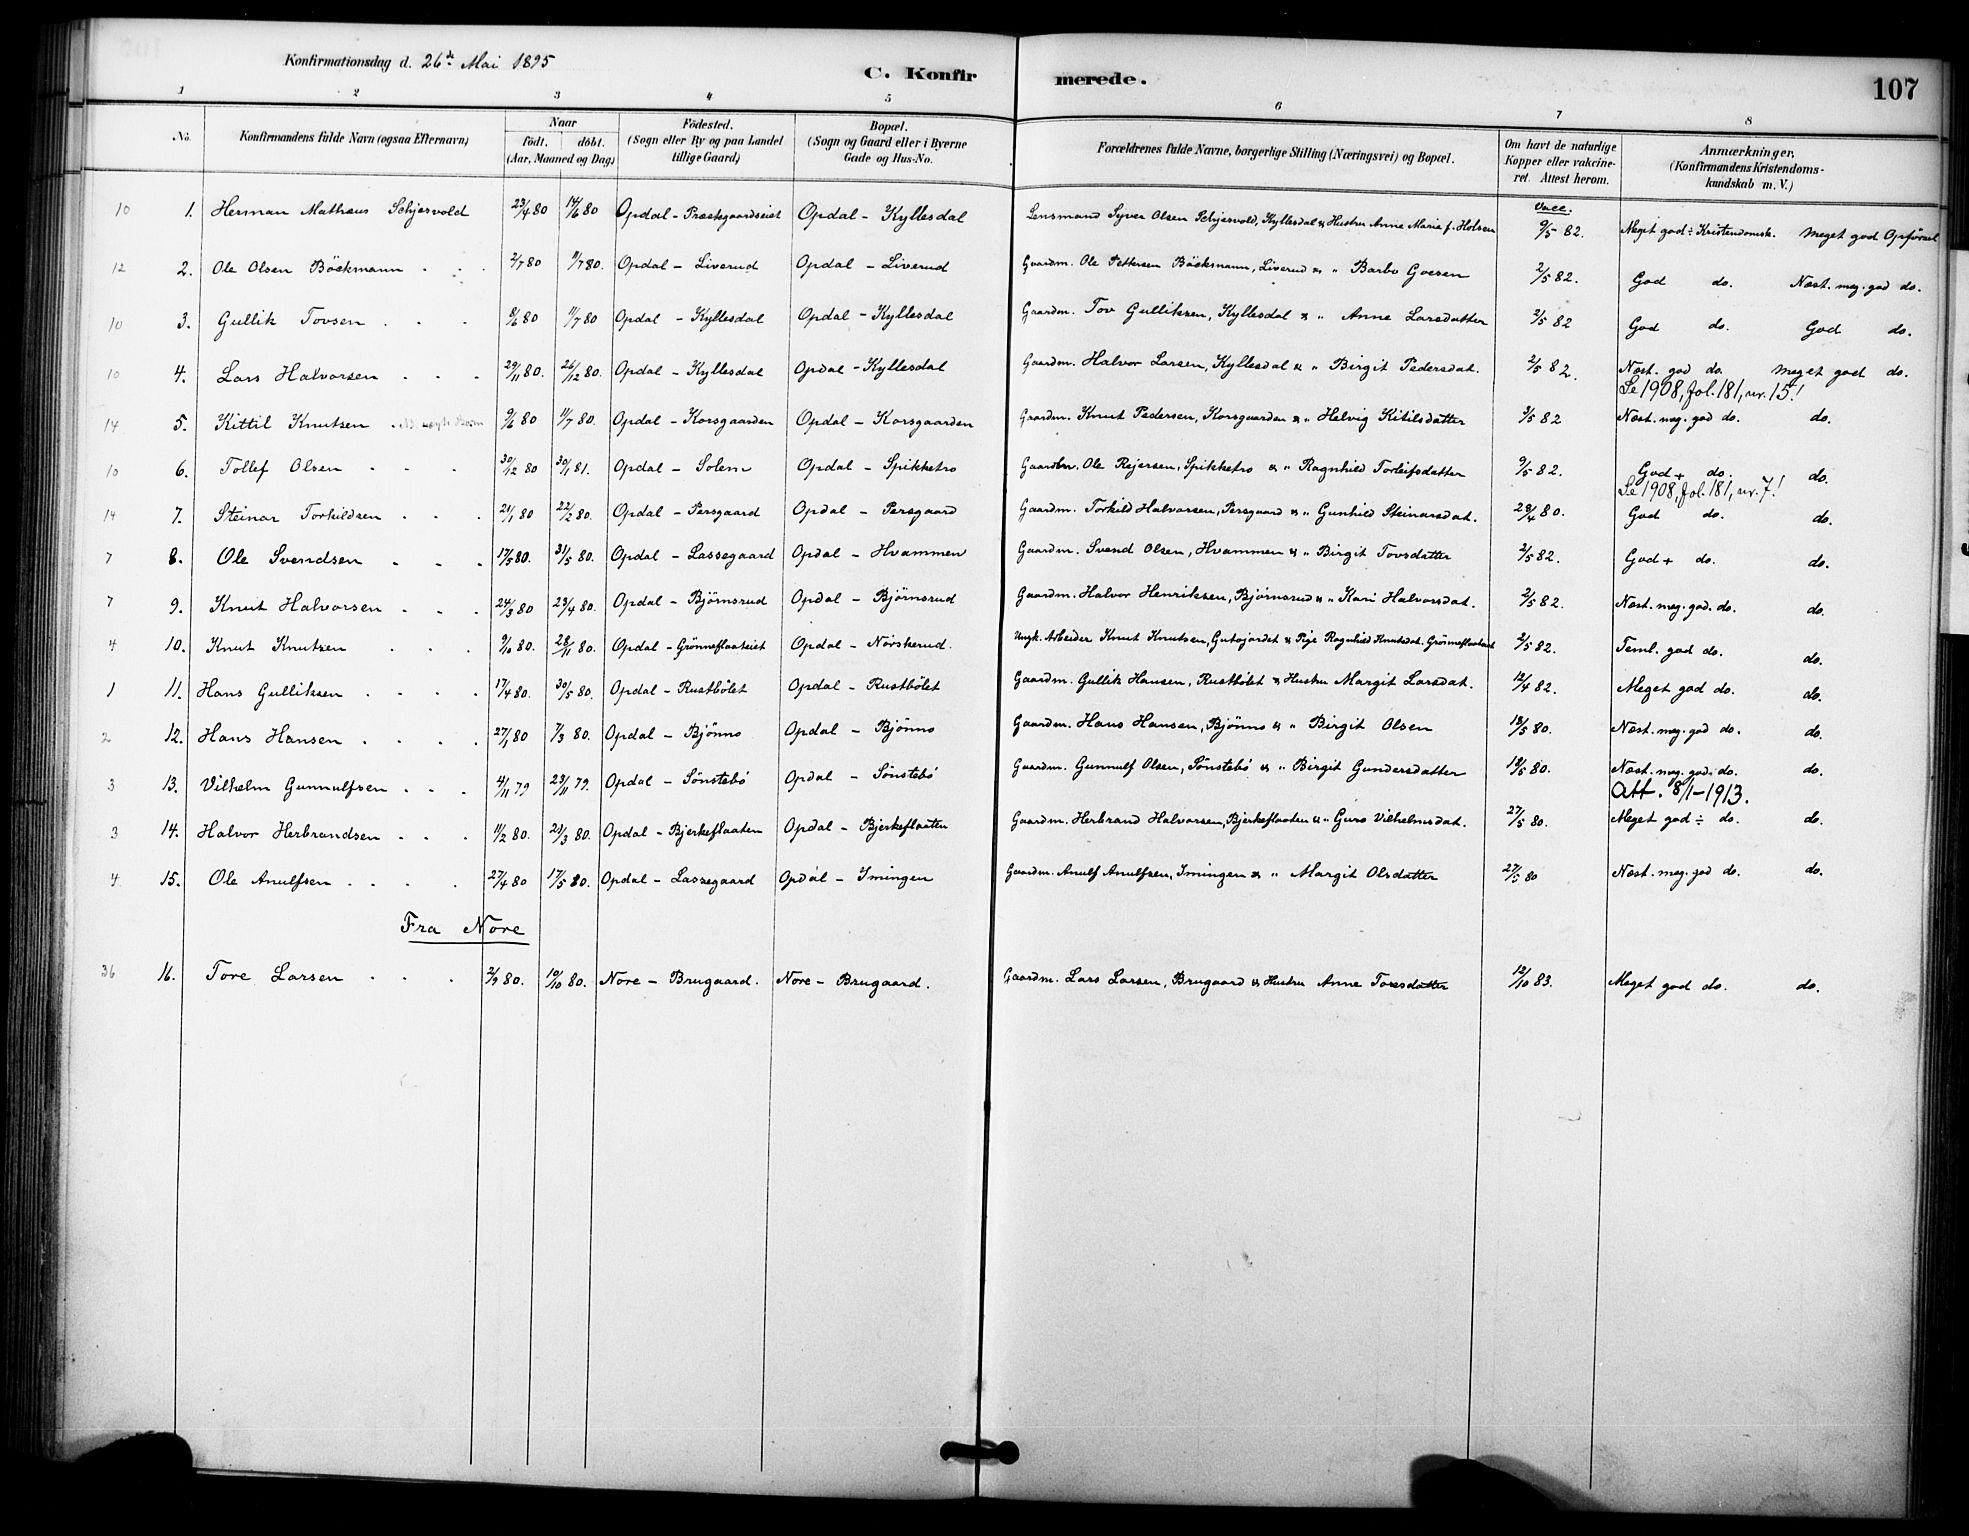 Konfirmationsdag d. 26de Mai 1895
C. Konfirmerede.
107
1 2 3 4 5 6 7 8
No. Konfirmandens fulde Navn (ogsaa Efternavn) Naar født. døbt. (Aar, Maaned og Dag) Fødested. (Sogn eller By og paa Landet tillige Gaard) Bopæl. (Sogn og Gaard eller i Byerne Gade og Hus-No. Forældrenes fulde Navne, borgerlige Stilling (Næringsvei) og Bopæl. Om havt de naturlige Kopper eller vakcineret. Attest herom. Anmærkninger, (Konfirmandens Kristendomskundskab m. V.)
10 1. Herman Mathæus Schjervold 23/4 80 14/6 80 Opdal - Præstegaardseiet Opdal - Kyllesdal Lensmand Syver Olsen Schjervold, Kyllesdal & Hustru Anne Marie f. Holsen Vacc. 9/5 82. Meget god ÷ Kristendomsk. Meget god Opførsel
12 2. Ole Olsen Böckmann 2/7 80 11/7 80. Opdal - Liverud Opdal - Liverud Gaardm. Ole Pettersen Böckmann, Liverud & " Barbo Goesen 2/5 82. God do. Næst. meg. god do.
10 3. Gullik Tovsen 8/6 80 11/7 80 Opdal - Kyllesdal Opdal - Kyllesdal Gaardm. Tov Gulliksen, Kyllesdal & " Anne Larsdatter 2/5 82 God do. God do.
10 4. Lars Halvorsen 29/11 80. 26/12 80. Opdal - Kyllesdal Opdal - Kyllesdal Gaardm. Halvor Larsen, Kyllesdal & " Birgit Pedersdat. 2/5 82. Næst. god do. Meget god do.
Se 1908, fol. 181, nr. 15!
14 5. Kittil Knutsen 9/6 80 11/7 80. Opdal - Korsgaarden Opdal - Korsgaarden Gaardm. Knut Pedersen, Korsgaarden & " Helvig Kitilsdatter 2/5 82 Næst. meg. god do. do.
10 6. Tollef Olsen 30/12 80 30/1 81. Opdal - Solem Opdal - Spikketro Gaardbr. Ole Rejersen, Spikketro & " Ragnhild Torleifsdatter 9/5 82. God + do. do.
Se 1908, fol. 181, nr. 7!
14 7. Steinar Torkildsen 21/1 80 22/2 80. Opdal - Persgaard Opdal - Persgaard Gaardm. Torkild Halvorsen, Persgaard & " Gunhild Steinarsdat. 29/4 80. God do. do.
7 8. Ole Svendsen 17/5 80. 31/5 80. Opdal - Lassegaard Opdal - Hvammen Gaardm. Svend Olsen, Hvammen & " Birgit Tovsdatter 2/5 82. God + do. do.
7 9. Knut Halvorsen 24/3 80 23/4 80. Opdal - Bjørnsrud Opdal - Bjørnsrud Gaardm. Halvor Henriksen, Bjørnsrud & " Kari Halvorsdat. 2/5 82. Næst. meg. god. do. do.
4 10. Knut Knutsen 9/10 80. 28/11 80. Opdal - Grønneflaateiet Opdal - Nørsterud. Ungk. Arbeider Knut Knutsen, Gutujordet & Pige Ragnhild Knutsdat. Grønneflaateiet 2/5 82. Teml. god do. do.
1 11. Hans Gulliksen 17/4 80. 30/5 80. Opdal - Rustbølet Opdal - Rustbølet Gaardm. Gullik Hansen, Rustbølet & Hustru Margit Larsdat. 12/4 82. Meget god do. do.
2 12. Hans Hansen 27/1 80 7/3 80. Opdal - Bjønno Opdal - Bjønno Gaardm. Hans Hansen, Bjønno & " Birgit Olsen 18/5 80. Næst. meg. god do. do.
3 13. Vilhelm Gunnulfsen 4/11 79 23/11 79. Opdal - Sønstebø Opdal - Sønstebø Gaardm. Gunnulf Olsen, Sønstebø & " Birgit Gundersdatter 18/5 80. Næst. meg. god. do. do.
Att. 8/1-1913.
3 14. Halvor Herbrandsen 11/2 80. 21/3 80. Opdal - Bjerkeflaaten Opdal - Bjerkeflaaten Gaardm. Herbrand Halvorsen, Bjerkeflaaten & " Guro Vilhelmsdat. 27/5 80. Meget god ÷ do. do.
4 15. Ole Anulfsen 27/4 80 17/5 80. Opdal - Lassegaard Opdal - Imingen Gaardm. Anulf Anulfsen, Imingen & " Margit Olsdatter 27/5 80 Næst. meg. god do. do.
Fra Nore
36 16. Tore Larsen 2/9 80. 10/10 80. Nore - Brugaard. Nore - Brugaard. Gaardm. Lars Larsen, Brugaard & Hustru Anne Toresdatter 12/10 83. Meget god do. do.